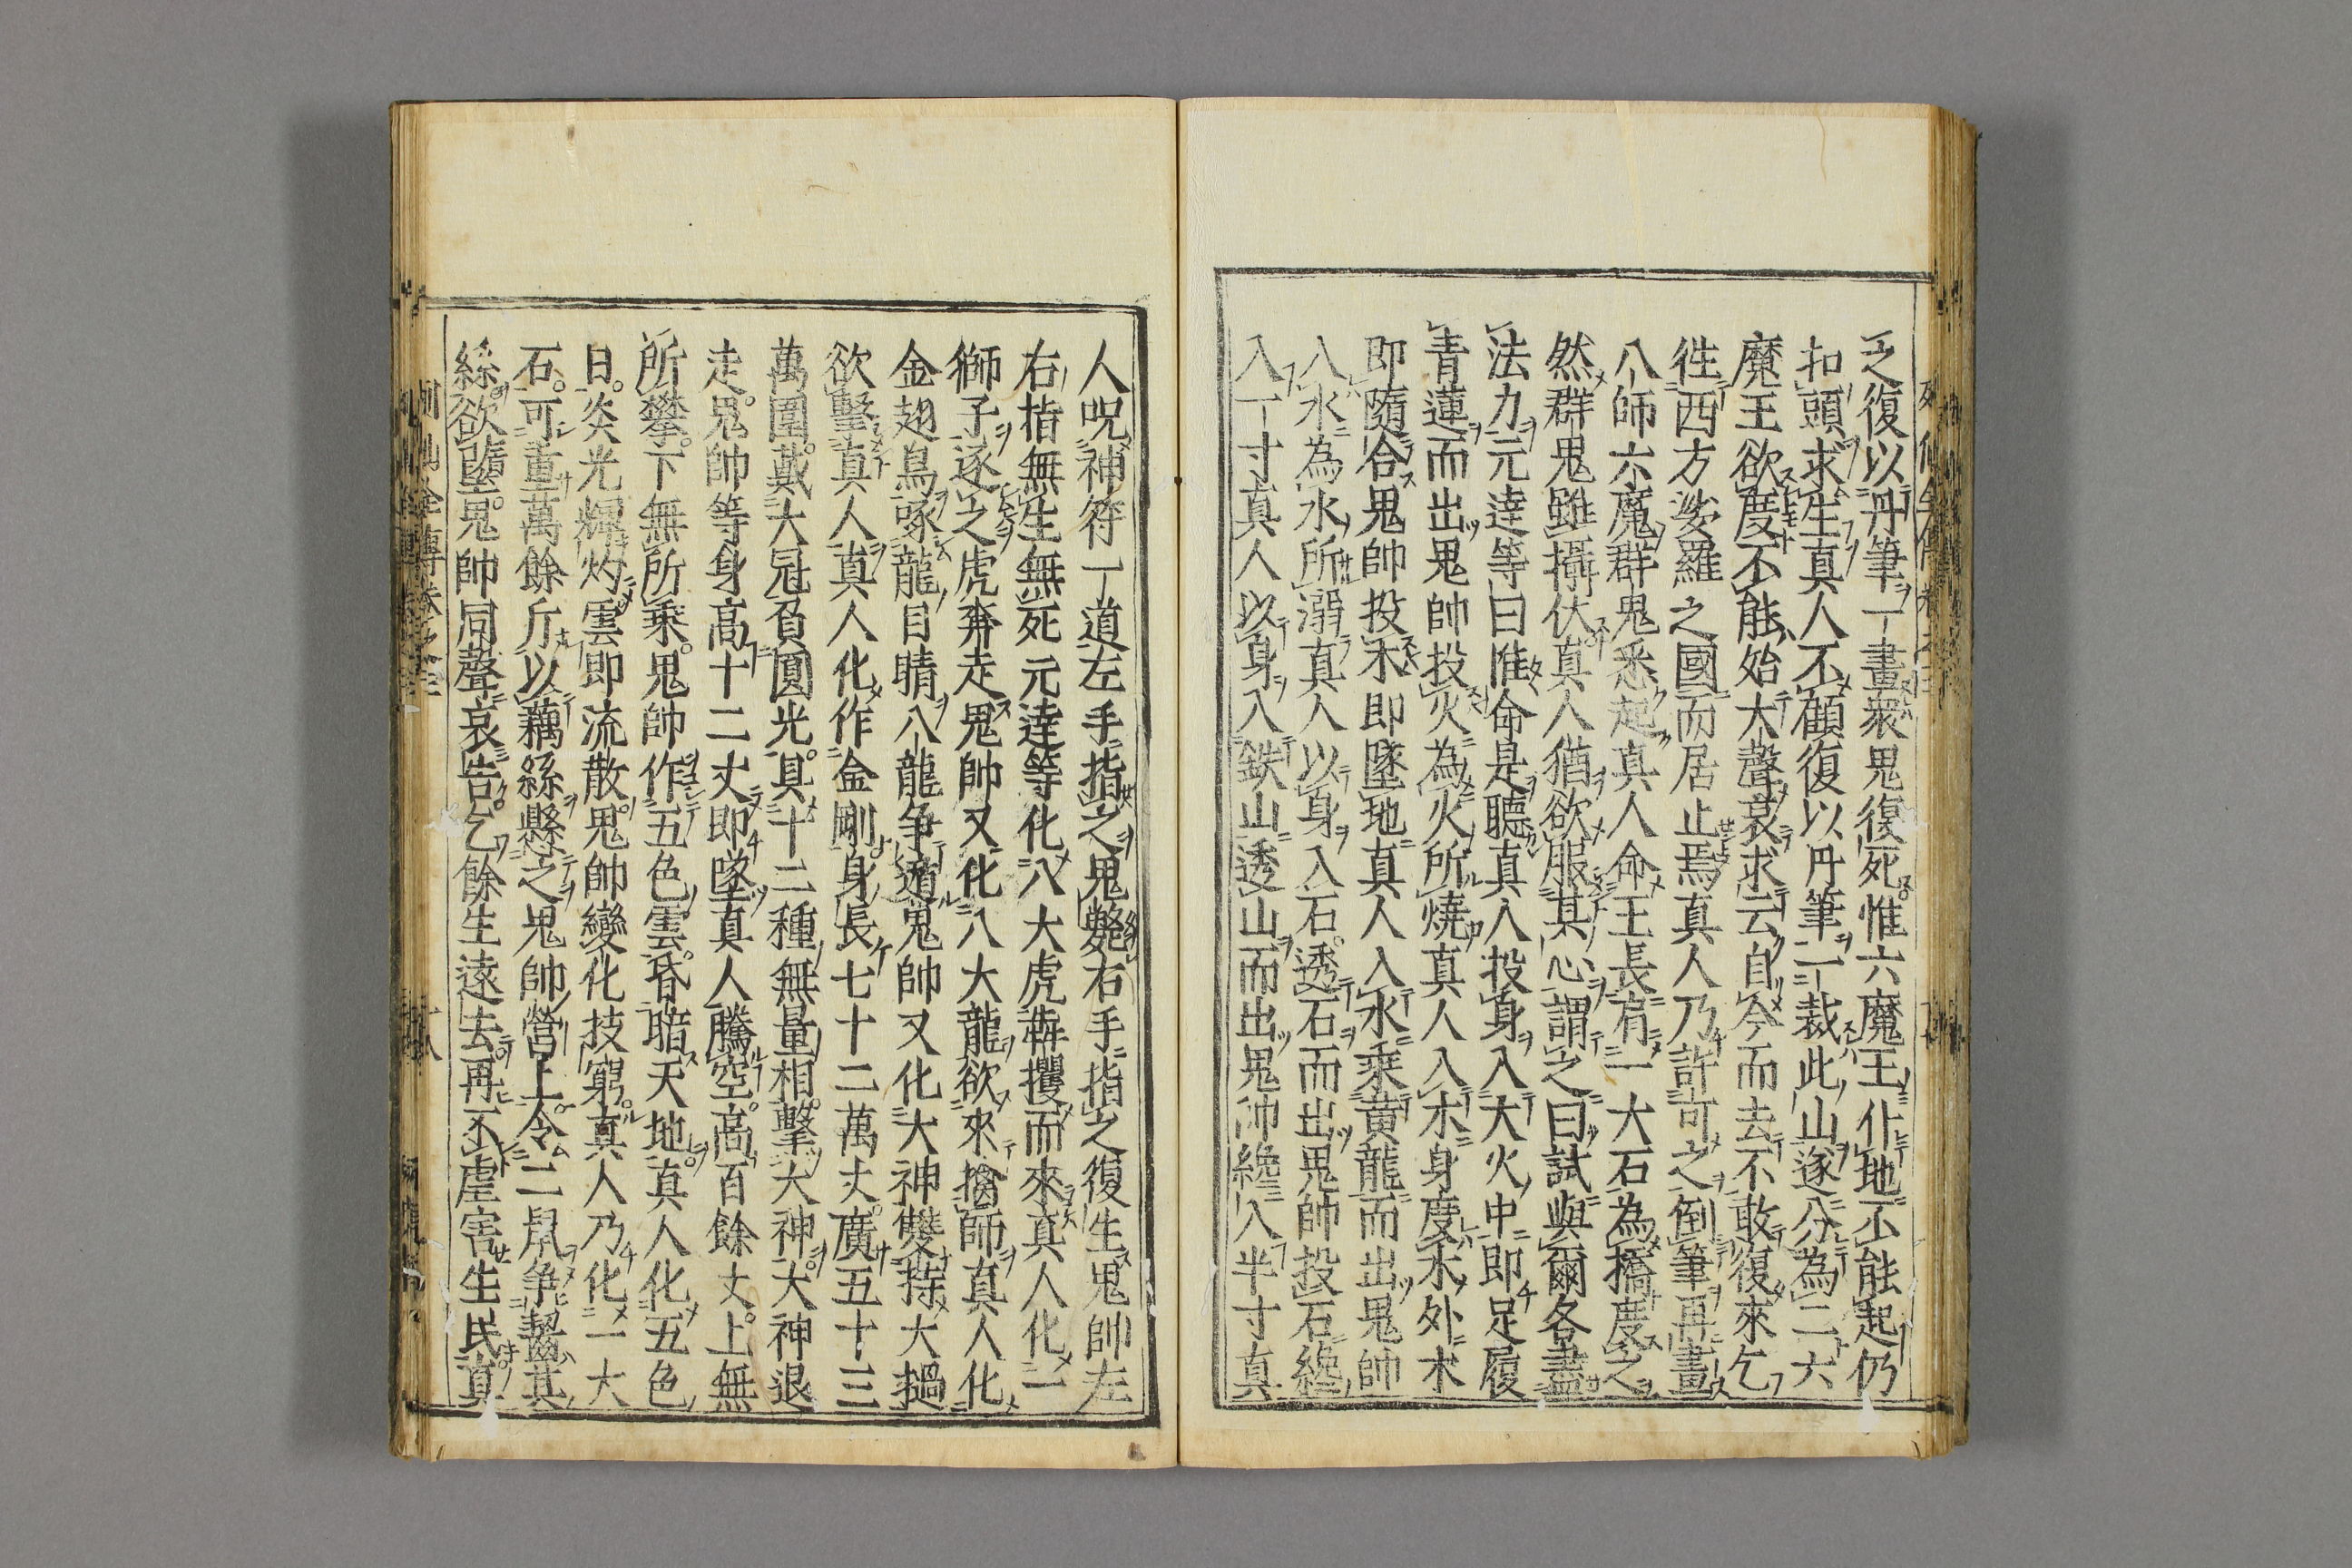 之復以丹筆一畫衆鬼復死惟六魔王仆地不能起仍
扣頭求生真人不顧復以丹筆一裁此山遂分為二六
魔王欲度不能始大聲哀求云自今而去不敢復來乞
徃西方娑羅之國而居止焉真人乃許可之倒筆再畫
八師六魔群鬼悉起真人命王長肩一大石為橋度之
然群鬼雖攝伏真人猶欲服其心謂之曰試與爾各盡
法力元逹等曰惟命是聽真人投身入大火中即足履
青蓮而出鬼帥投火為火所燒真人入木身度木外木
即隨合鬼帥投木即墜地真人入水乘黄龍而出鬼帥
入水為水所溺真人以身入石透石而出鬼帥投石纔
入一寸真人以身入鉄山透山而出鬼帥纔入半寸真
人呪神符一道左手指之鬼斃右手指之復生鬼帥左
右指無生無死元逹等化八大虎犇攫而來真人化一
獅子逐之虎奔走鬼帥又化八大龍欲來擒師真人化
金翅鳥啄龍目睛八龍争遁鬼帥又化大神雙持大撾
欲擊真人真人化作金剛身長七十二萬丈廣五十三
萬圍戴大冠負圓光具十二種無量相擊大神大神退
走鬼帥等身高十二丈即墜真人騰空高百餘丈上無
所攀下無所乘鬼帥作五色雲昏暗天地真人化五色
日炎光輝灼雲即流散鬼帥變化技窮真人乃化一大
石可重萬餘斤以藕絲懸之鬼帥營上令二鼠争齧其
絲欲墮鬼帥同聲哀告乞餘生遠去再不虐害生民真